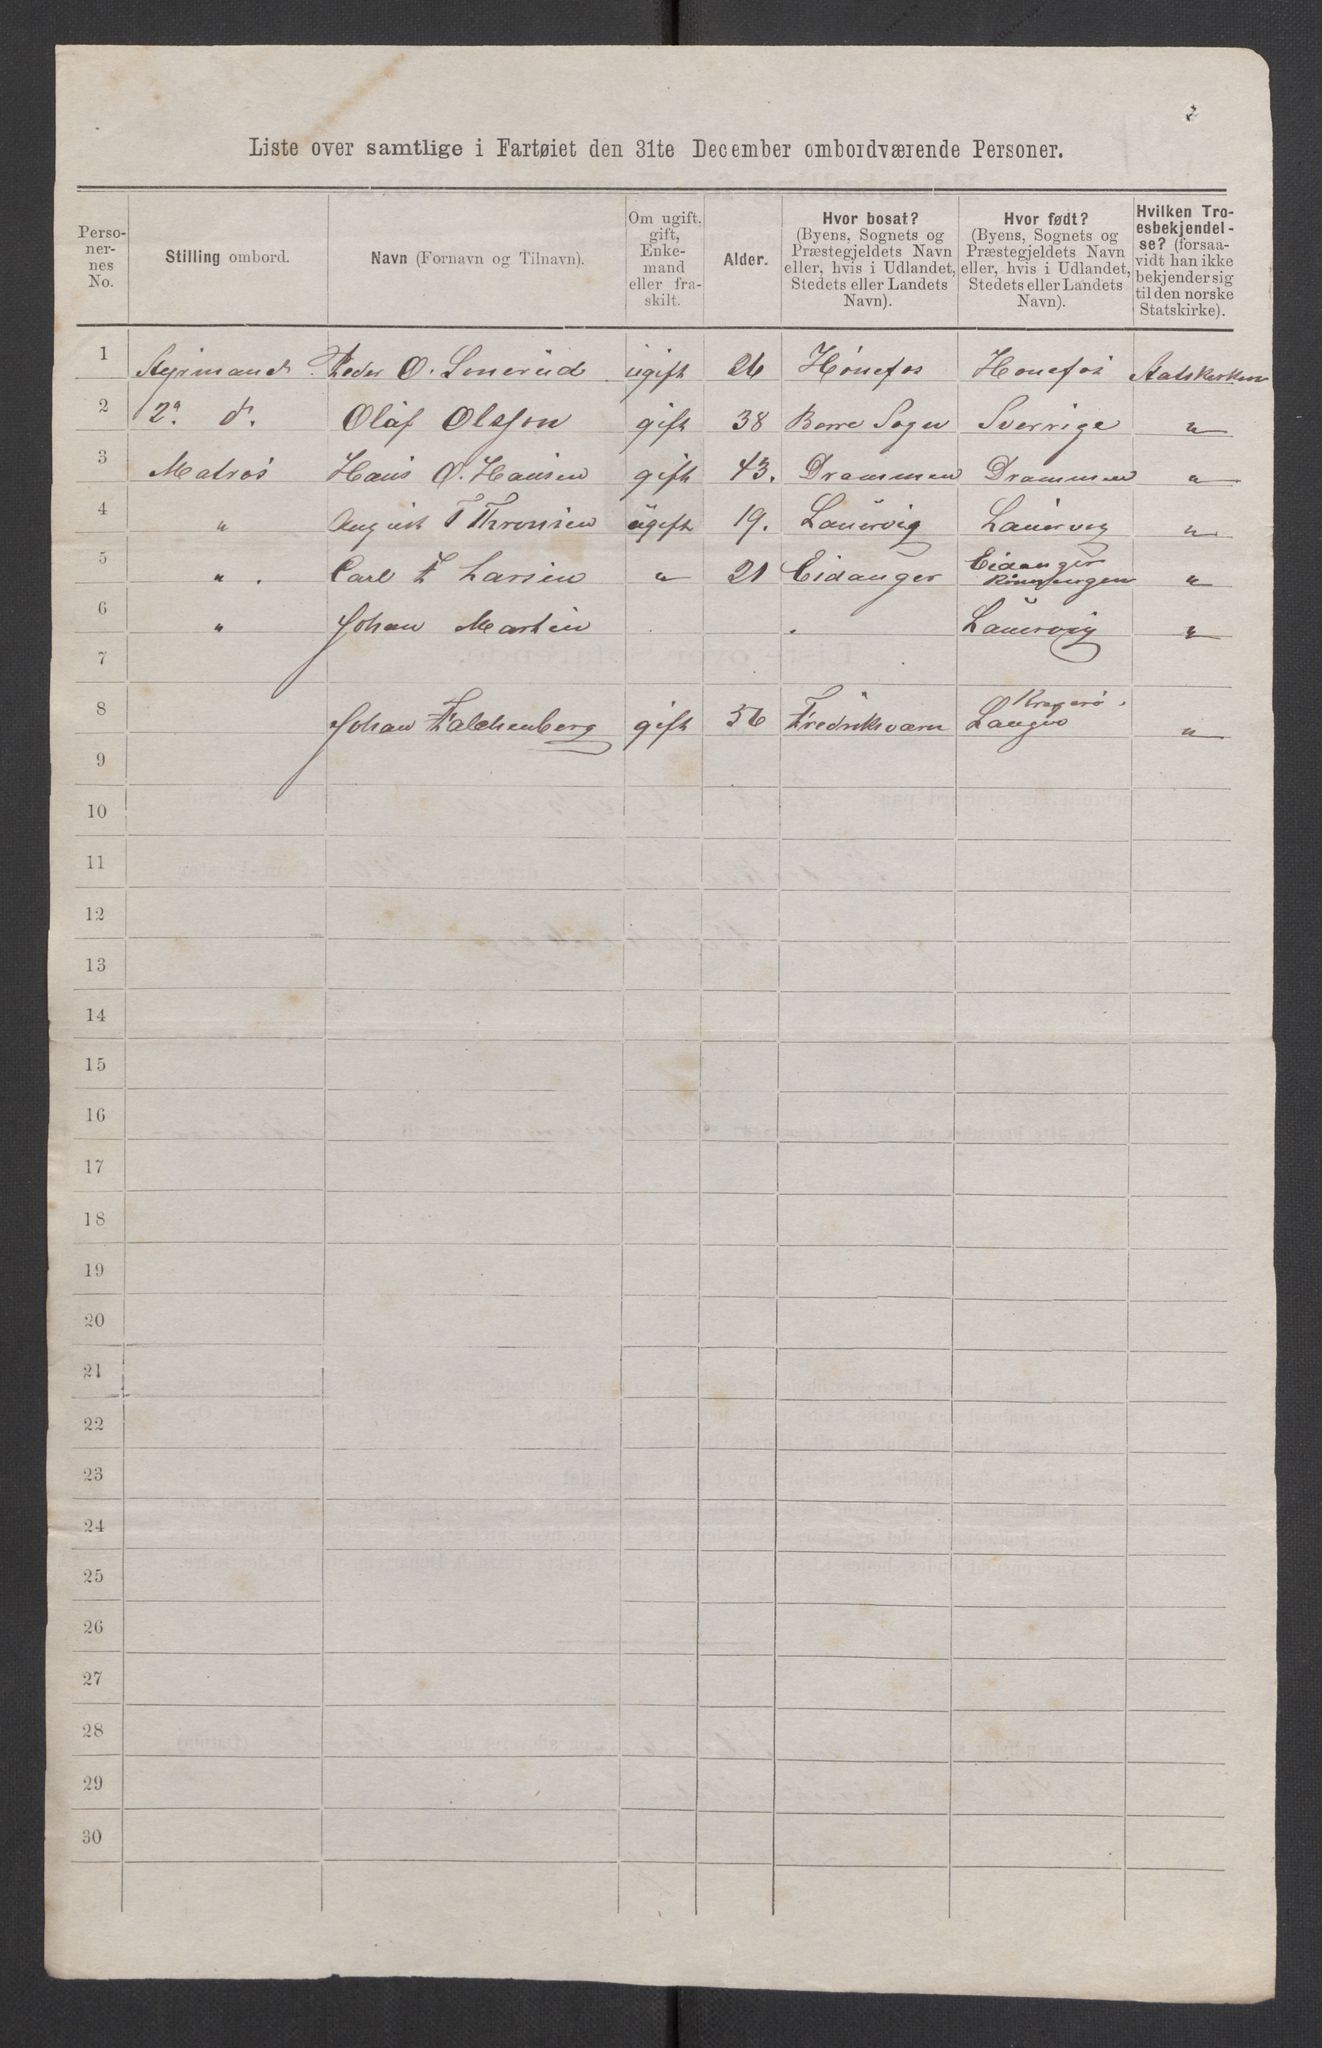 2
Liste over samtlige i Fartøiet den 31te December ombordværende Personer.
Perso-
ner-
nes
No.
Stilling ombord.
Navn (Fornavn og Tilnavn).
Om ugift,
gift,
Enke-
mand
eller fra-
skilt.
Alder.
Hvor bosat?
(Byens, Sognets og
Præstegjeldets Navn
eller, hvis i Udlandet,
Stedets eller Landets
Navn).
Hvor født?
(Byens, Sognets og
Præstegjeldets Navn
eller, hvis i Udlandet,
Stedets eller Landets
Navn).
Hvilken Tro-
esbekjendel-
se? (forsaa-
vidt han ikke
bekjender sig
til den norske
Statskirke).
1 Styrmand Peder O. Sonerud ugift 26 Hönefos Hönefos Statskirken
2 2n do. Olaf Olsson gift 38 Borre Sogn Sverrige "
3 Matros Hans O. Hansen gift 43. Drammen Drammen "
4 " August T Thronsen ugift 19. Laurvig Laurvig "
5 " . Carl F Larsen " 21 Eidanger Eidanger "
6 " Johan Martin . . Laurvig "
7
Kragerö .
8 Johan Falchenberg gift 56 Fredriksværn Langö "
9
10
11
12
13
14
15
16
17
18
19
20
21
22
23
24
25
26
27
28
29
30